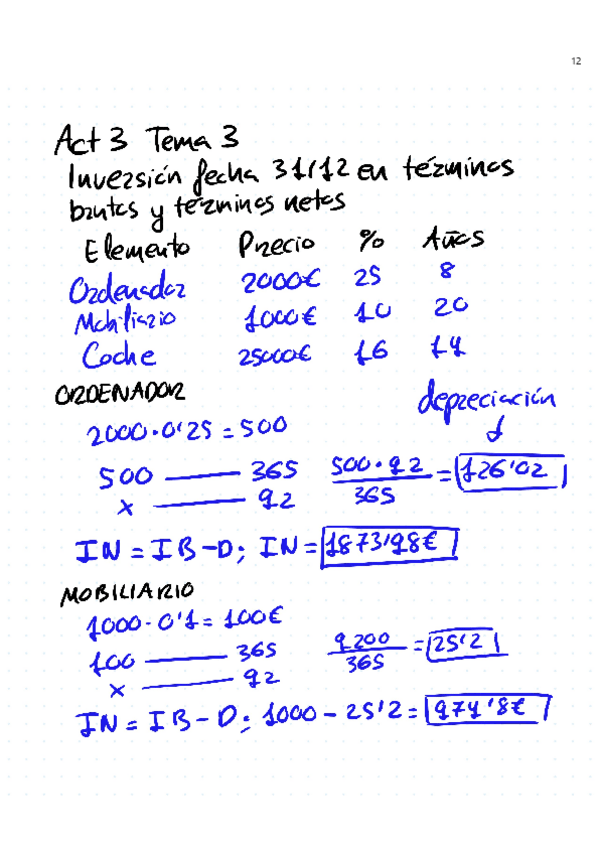 12
Act 3 Tema 3
Inversión fecha 31/12 en términos
brutos y términos netos
Elemento Precio % Años
Ordenador 2000€ 25 8
Mobiliario 1000€ 10 20
Coche 25000€ 16 14
ORDENADOR
depreciación
2000·0'25 = 500
500 — 365 500·92 = 126'02
x — 92 365
IN = IB-D; IN = 1873'98€
MOBILIARIO
1000·0'1 = 100€
100 — 365 9200 = 25'2
x — 92 365
IN = IB-D; 1000-25'2 = 974'8€